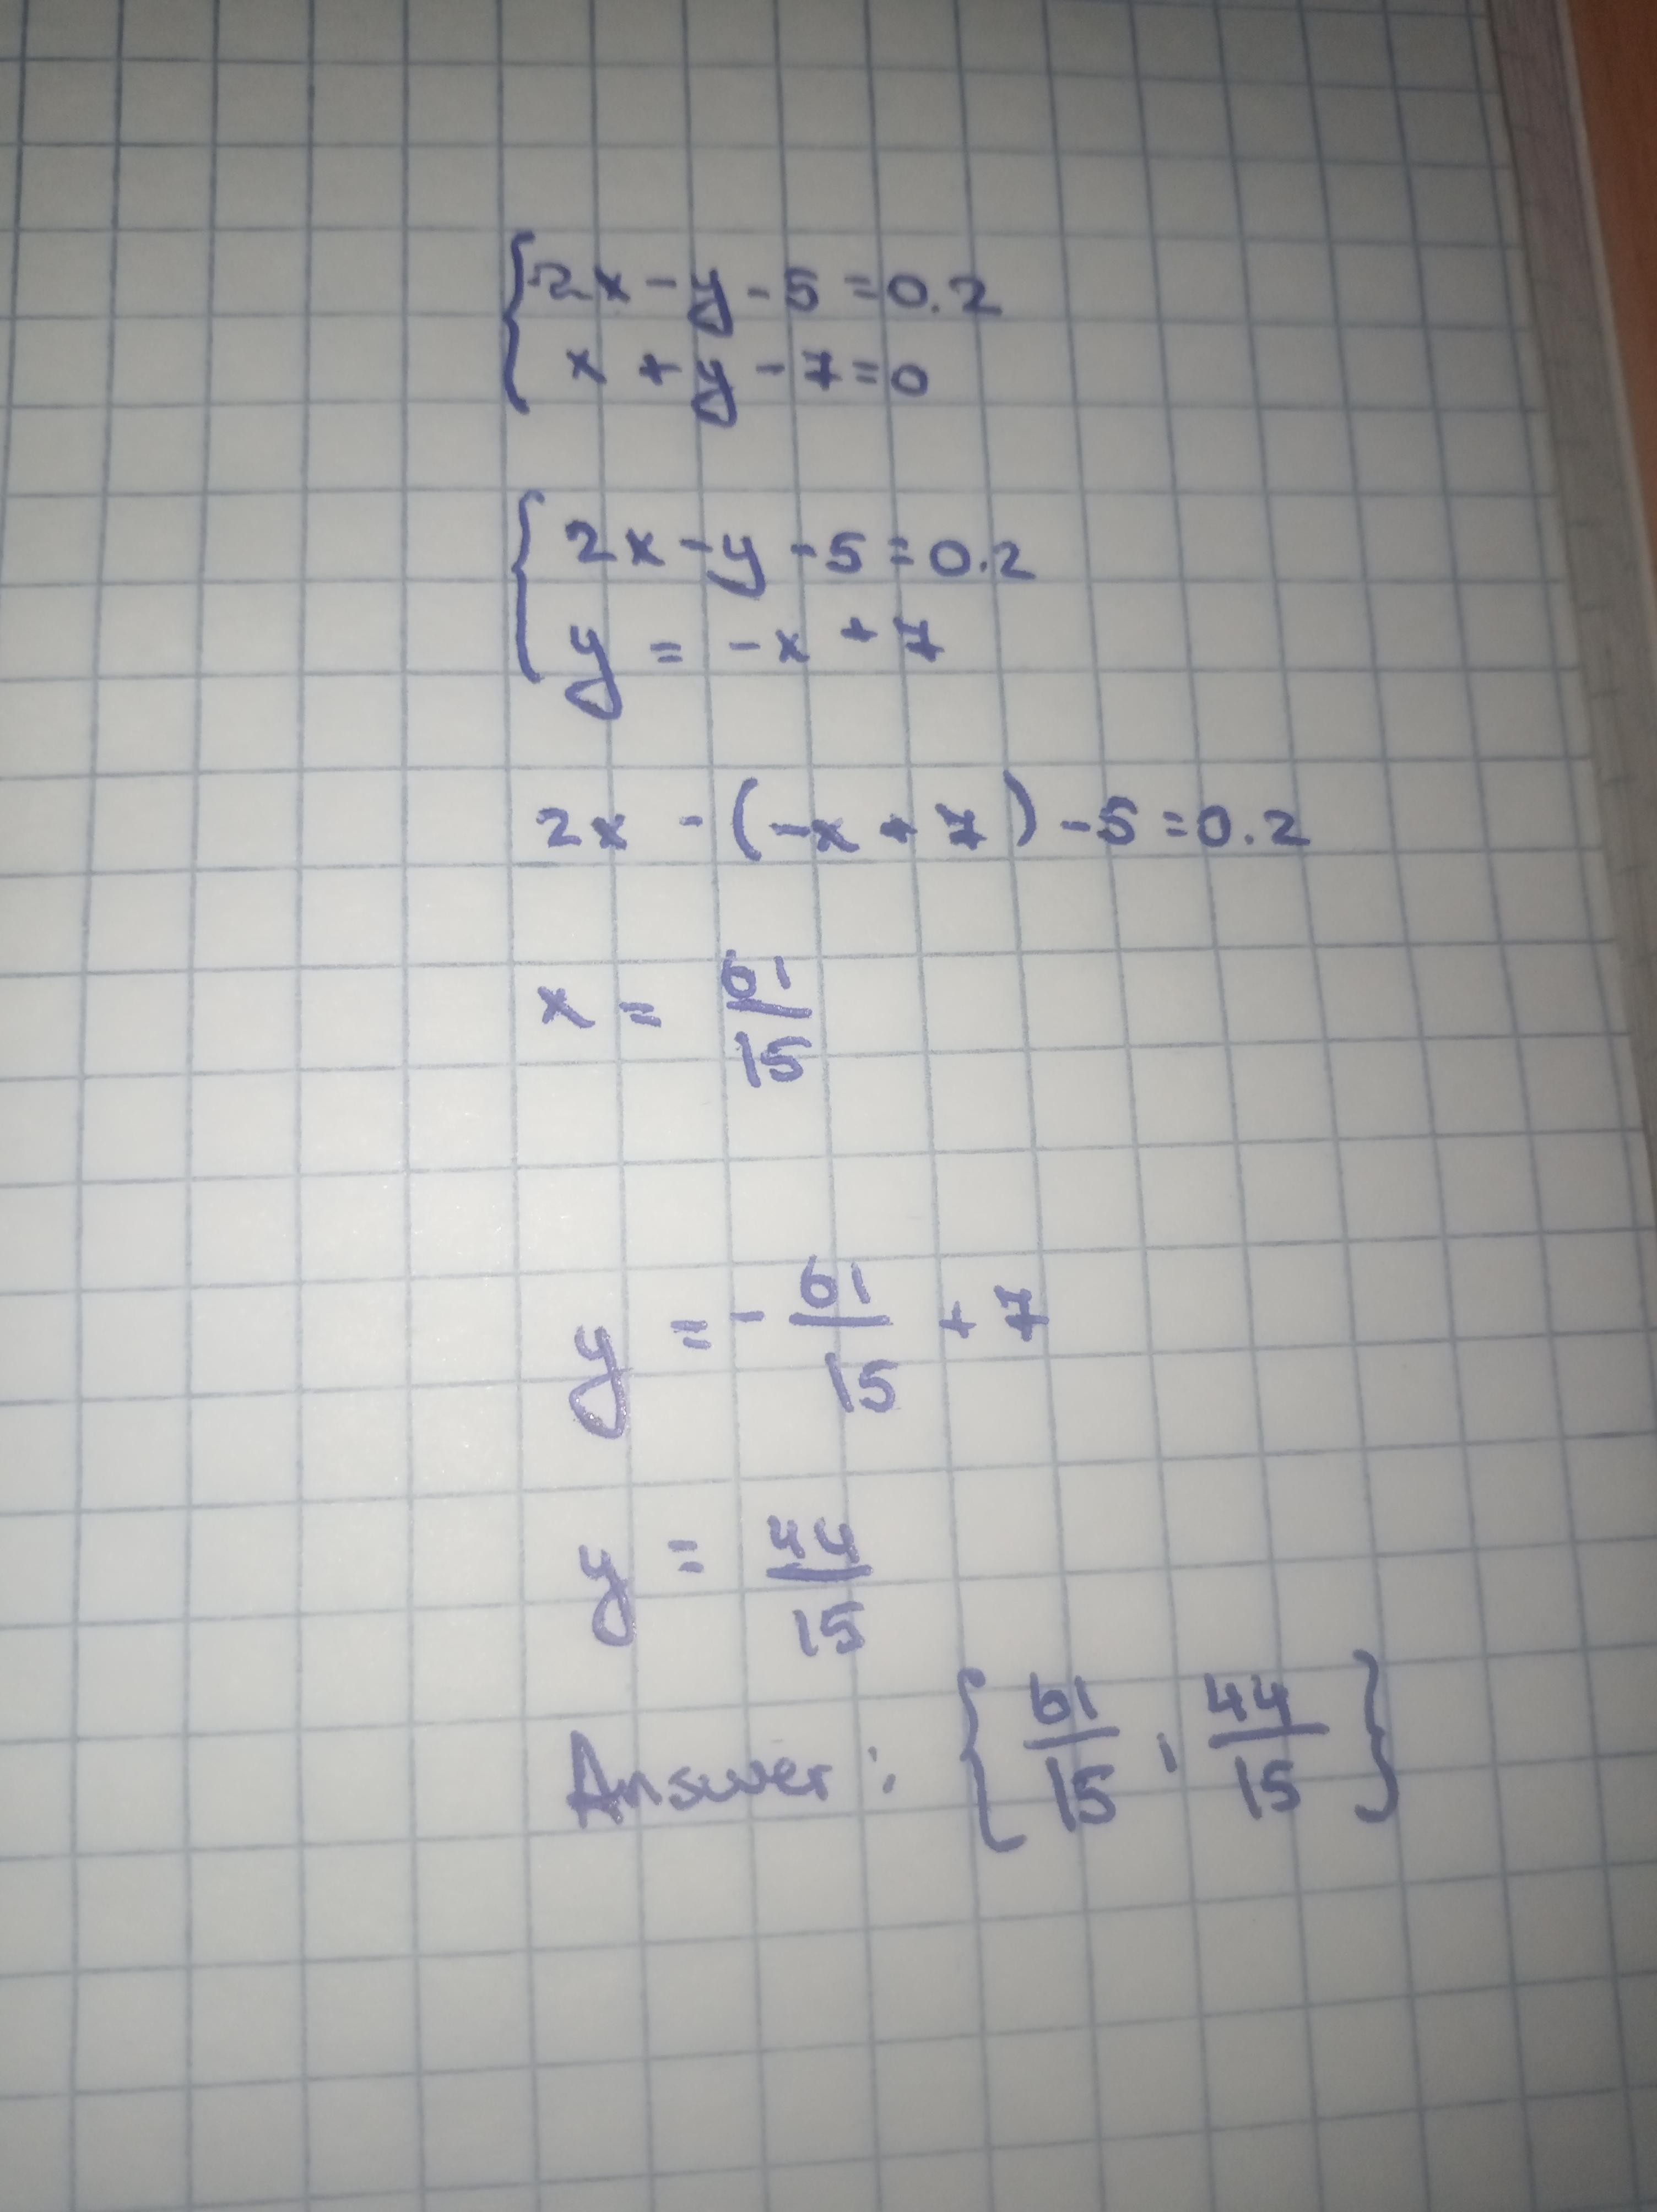 {2x - y - 5 = 0.2
x + y - 7 = 0
{2x - y - 5 = 0.2
y = -x + 7
2x - (-x + 7) - 5 = 0.2
x = 61/15
y = -61/15 + 7
y = 44/15
Answer: {61/15, 44/15}